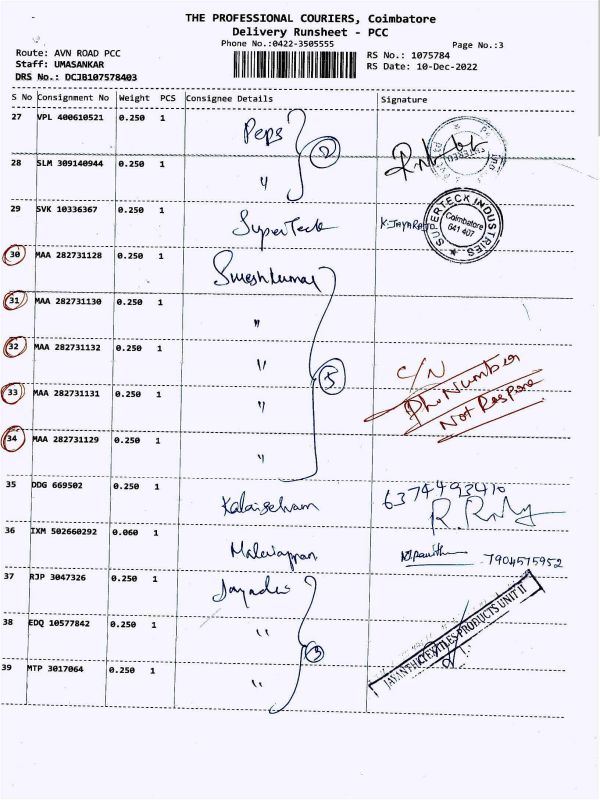 THE PROFESSIONAL COURIERS, Coimbatore
Delivery Runsheet - PCC
Phone No.:0422-3505555
Page No.:3
Route: AVN ROAD PCC
RS No.: 1075784
Staff: UMASANKAR
RS Date: 10-Dec-2022
DRS No.: DCJB107578403
S No Consignment No Weight PCS Consignee Details Signature
27 VPL 400610521 0.250 1 Peps
2
28 SLM 309140944 0.250 1 "
29 SVK 10336367 0.250 1 SuperTeck K.JAYARAJ
SUPERTECK INDUSTRIES
Coimbatore
641 407
30 MAA 282731128 0.250 1 Sureshkumar
31 MAA 282731130 0.250 1 "
32 MAA 282731132 0.250 1 "
5
C/N
Ph. Number
Not Respone
33 MAA 282731131 0.250 1 "
34 MAA 282731129 0.250 1 "
35 DDG 669502 0.250 1 Kalaiselvam 6374493410
36 IXM 502660292 0.060 1 7904575952
37 RJP 3047326 0.250 1 Jayadev
38 EDQ 10577842 0.250 1 "
3
JAYANTHI TEXTILES PRODUCTS UNIT II
39 MTP 3017064 0.250 1 "